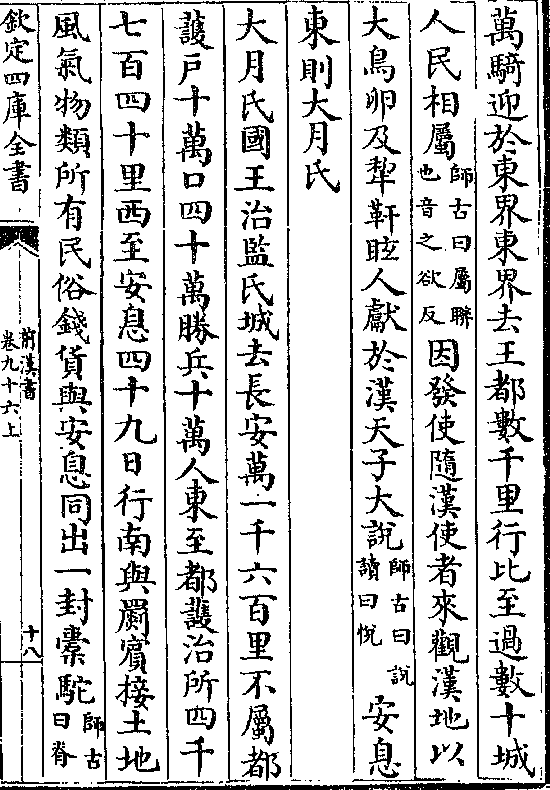 萬騎迎於東界東界去王都數千里行比至過數十城
人民相屬師古曰屬聯也音之欲反因發使隨漢使者來觀漢地以
大鳥卵及犂靬眩人獻於漢天子大說師古曰說讀曰悅安息
東則大月氏
大月氏國王治監氏城去長安萬一千六百里不屬都
護戶十萬口四十萬勝兵十萬人東至都護治所四千
七百四十里西至安息四十九日行南與罽賓接土地
風氣物類所有民俗錢貨與安息同出一封橐駝師古曰脊
欽定四庫全書
前漢書
卷九十六上
十八